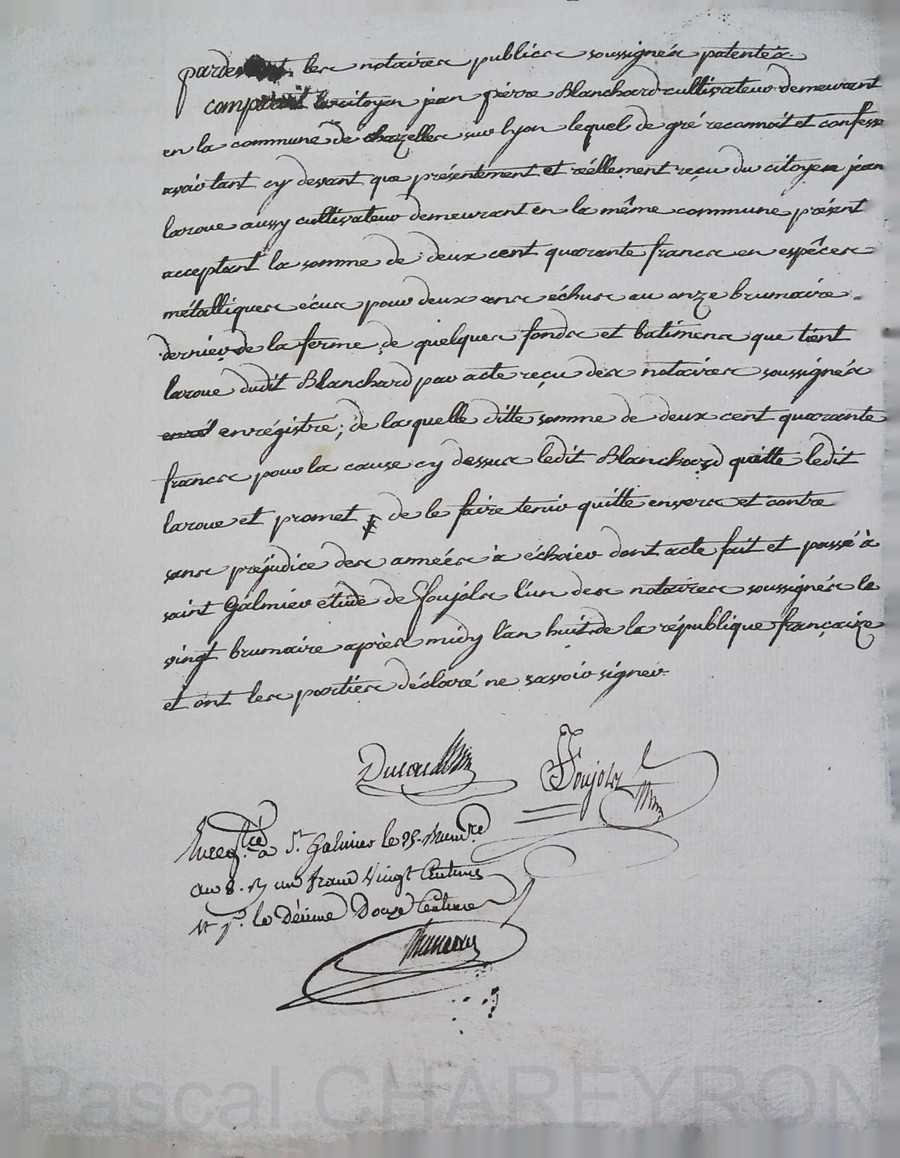 pardevant les notaires publics soussignés patentés
comparait le citoyen jean pierre Blanchard cultivateur demeurant
en la commune de chazelles sur lyon lequel de gré reconnoit et confesse
avoir tant cy devant que présentement et réellement reçu du citoyen jean
laroue aussy cultivateur demeurant en la même commune présent
acceptant la somme de deux cent quarante francs en espêces
métalliques écus pour deux ans échus au onze brumaire
dernier, de la ferme de quelques fonds et batimens que tient
laroue dudit Blanchard par acte reçu des notaires soussignés
enrégistré; de laquelle ditte somme de deux cent quarante
francs pour la cause cy dessus ledit Blanchard quitte ledit
laroue et promet de le faire tenir quitte envers et contre
sans préjudice des années à échoier dont acte fait et passé à
saint Galmier etude de foujols l'un des notaires soussignés le
vingt brumaire après midy l'an huit de la république françaize
et ont les parties déclaré ne savoir signer.
Foujols
Enregtré à St Galmier le 25. brumre
an 8. Rç un franc Vingt Centimes
et pr. le Décime Douze Centimes
Pascal CHAREYRON